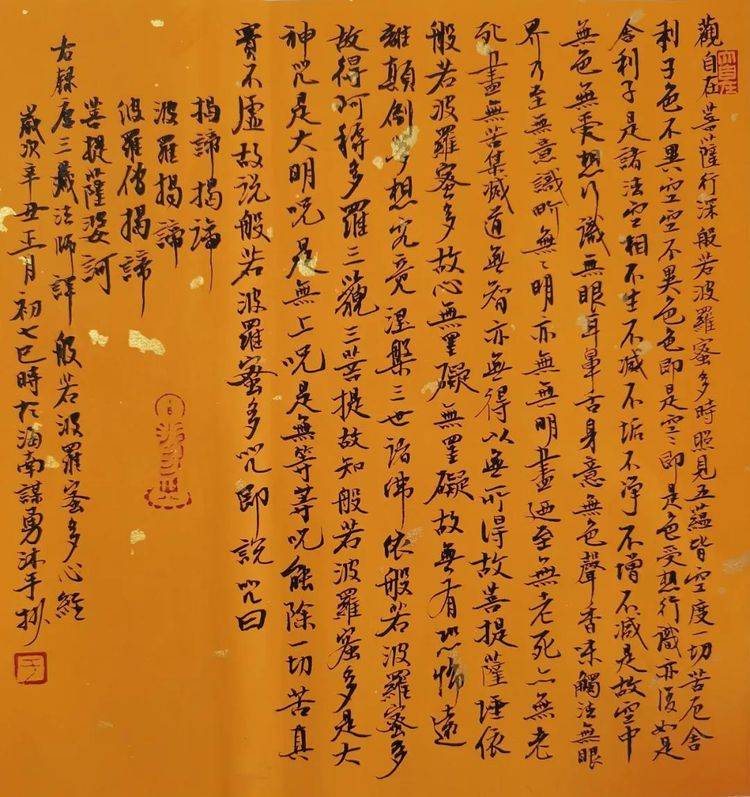 觀自在菩薩行深般若波羅蜜多時照見五蘊皆空度一切苦厄舍
利子色不異空空不異色色即是空〻即是色受想行識亦復如是
舍利子是諸法空相不生不滅不垢不淨不增不減是故空中
無色無受想行識無眼耳鼻舌身意無色聲香味觸法無眼
界乃至無意識界無〻明亦無無明盡迺至無老死亦無老
死盡無苦集滅道無智亦無得以無所得故菩提薩埵依
般若波羅蜜多故心無罣礙無罣礙故無有恐怖遠
離顛倒夢想究竟涅槃三世諸佛依般若波羅蜜多
故得阿耨多羅三藐三菩提故知般若波羅蜜多是大
神咒是大明咒是無上咒是無等等咒能除一切苦真
實不虛故説般若波羅蜜多咒即説咒曰
揭諦揭諦
波羅揭諦
波羅僧揭諦
菩提薩婆訶
右錄唐三藏法師譯般若波羅蜜多心經
歲次辛丑正月初七巳時於海南謀勇沐手抄